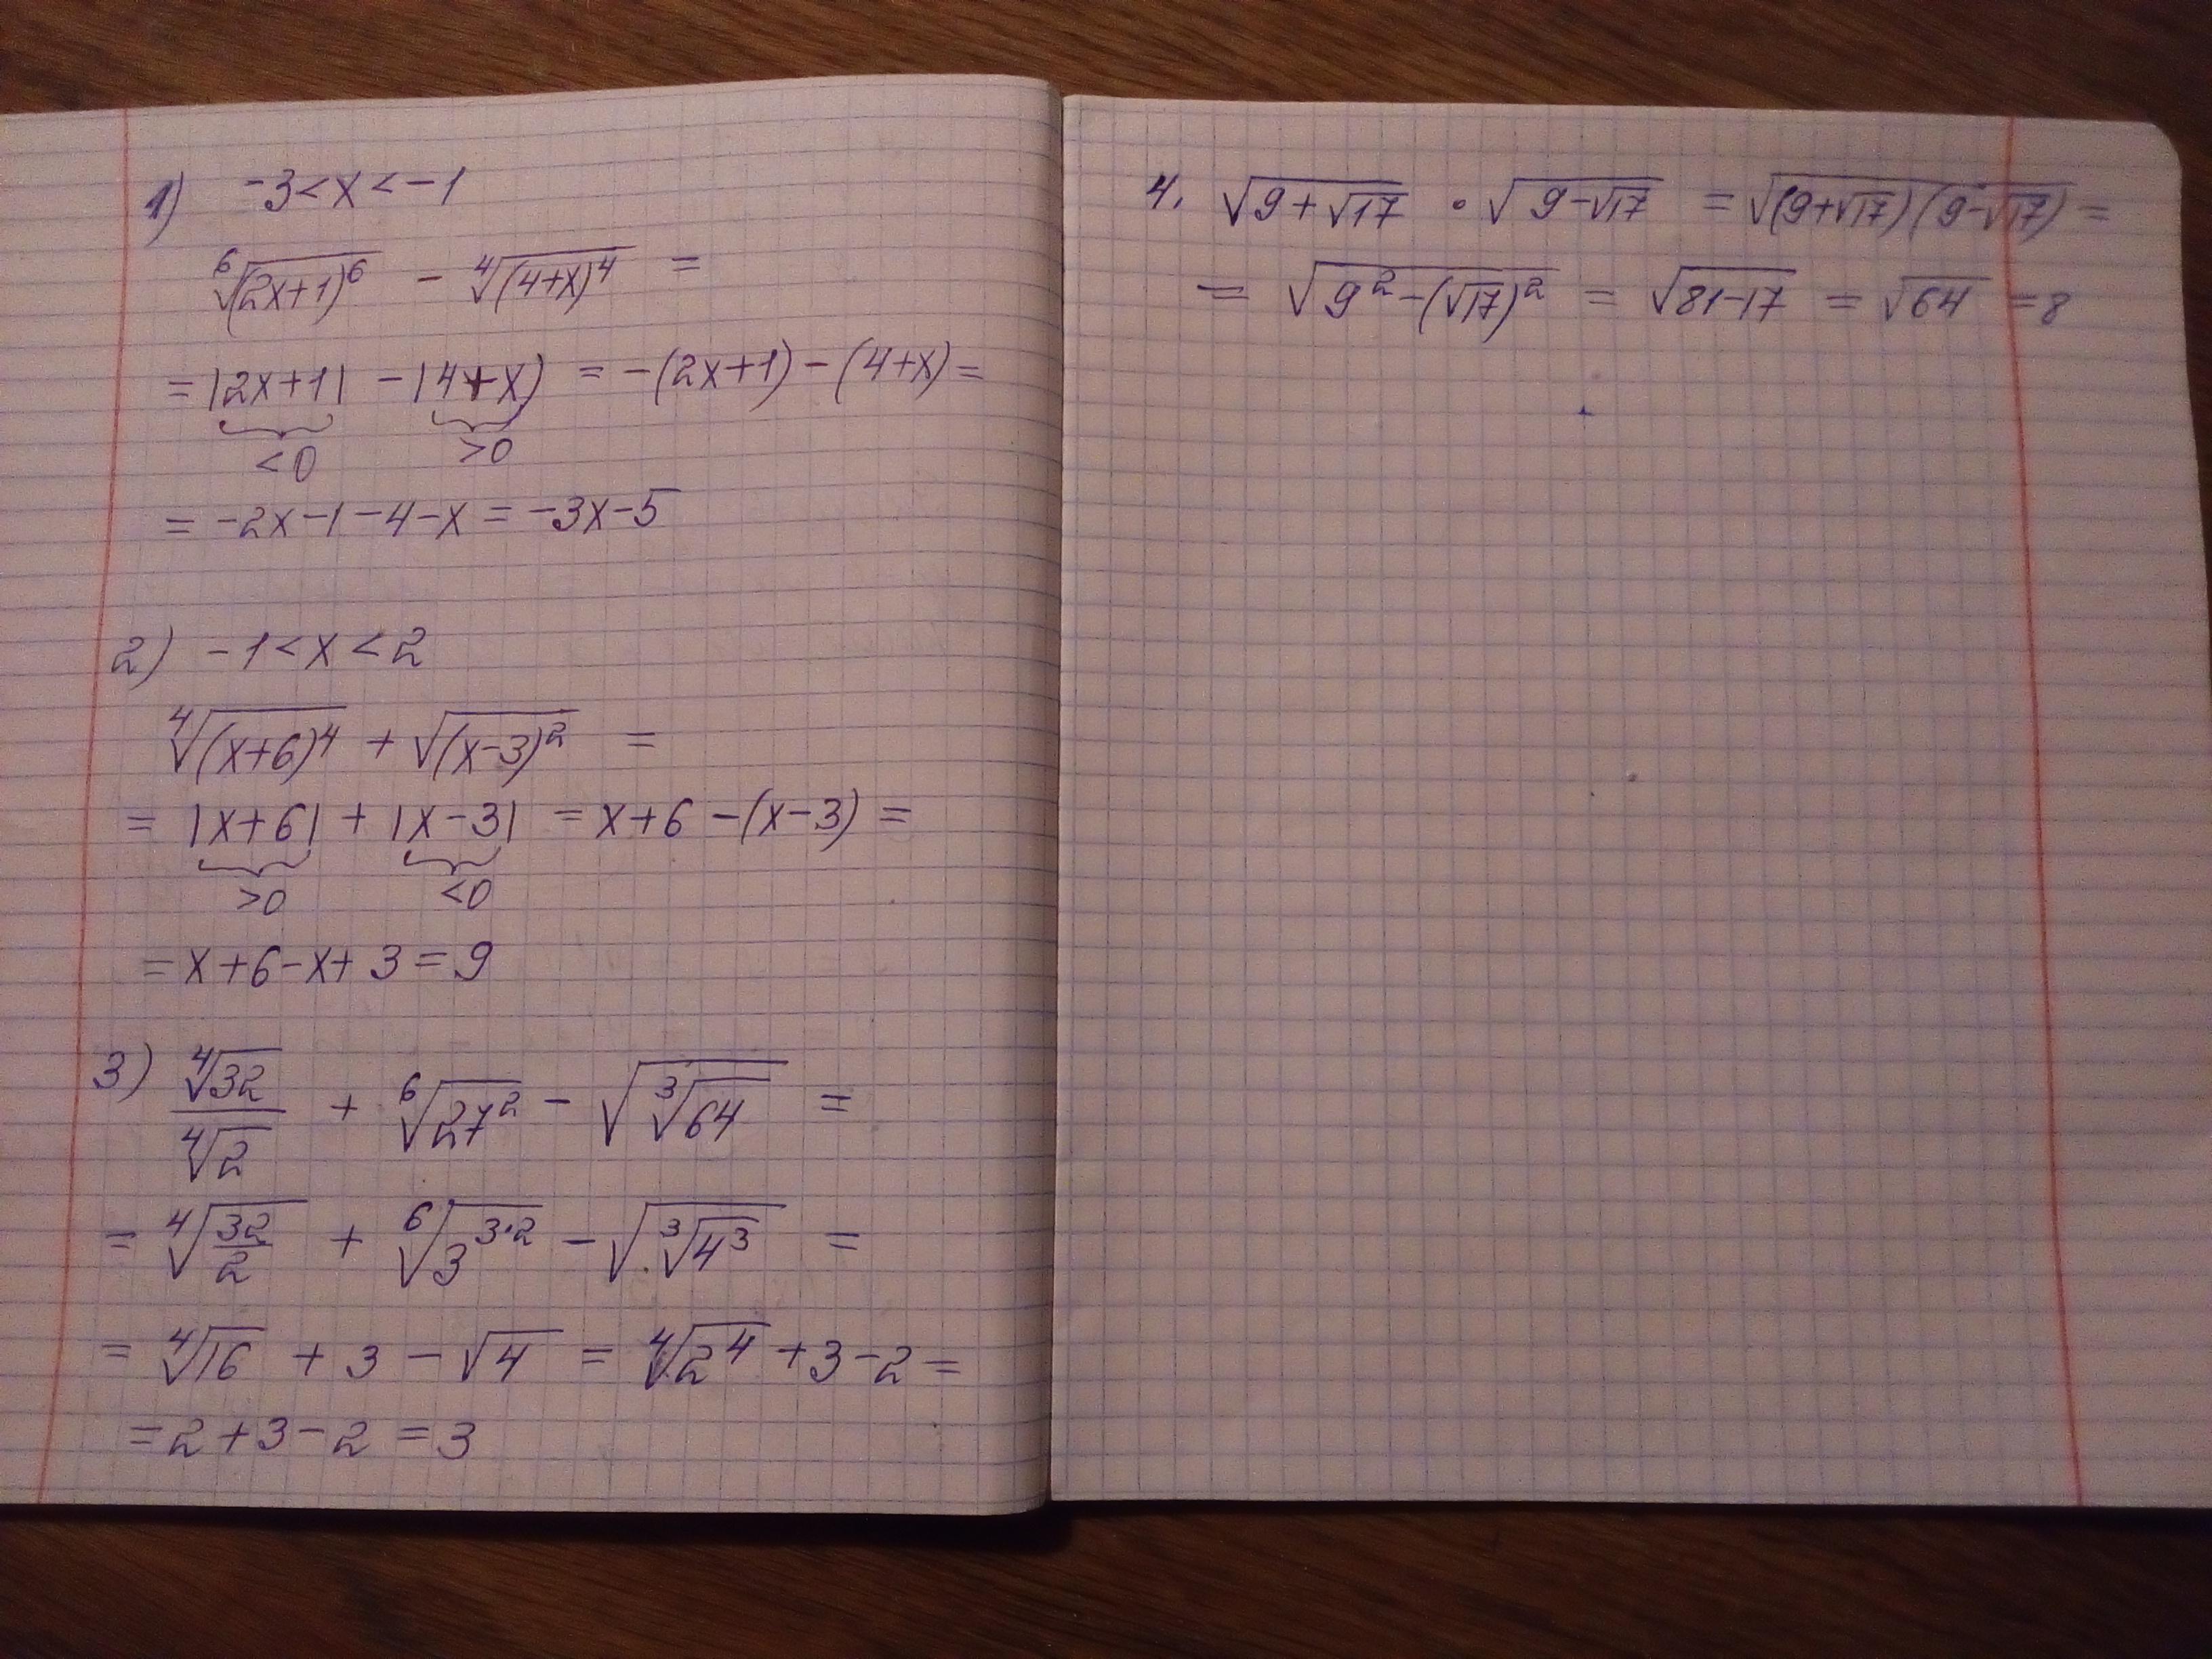 1) -3<x<-1
⁶√(2x+1)⁶ - ⁴√(4+x)⁴ =
= |2x+1| - |4+x) = -(2x+1) - (4+x) =
<0 >0
= -2x-1-4-x = -3x-5
2) -1<x<2
⁴√(x+6)⁴ + √(x-3)² =
= |x+6| + |x-3| = x+6 -(x-3) =
>0 <0
= x+6-x+3 = 9
3) ⁴√32 / ⁴√2 + ⁶√27² - √(³√64) =
= ⁴√(32/2) + ⁶√3^(3·2) - √(³√4³) =
= ⁴√16 + 3 - √4 = ⁴√2⁴ + 3 - 2 =
= 2+3-2 = 3
4. √(9+√17) · √(9-√17) = √((9+√17)(9-√17)) =
= √(9²-(√17)²) = √(81-17) = √64 = 8